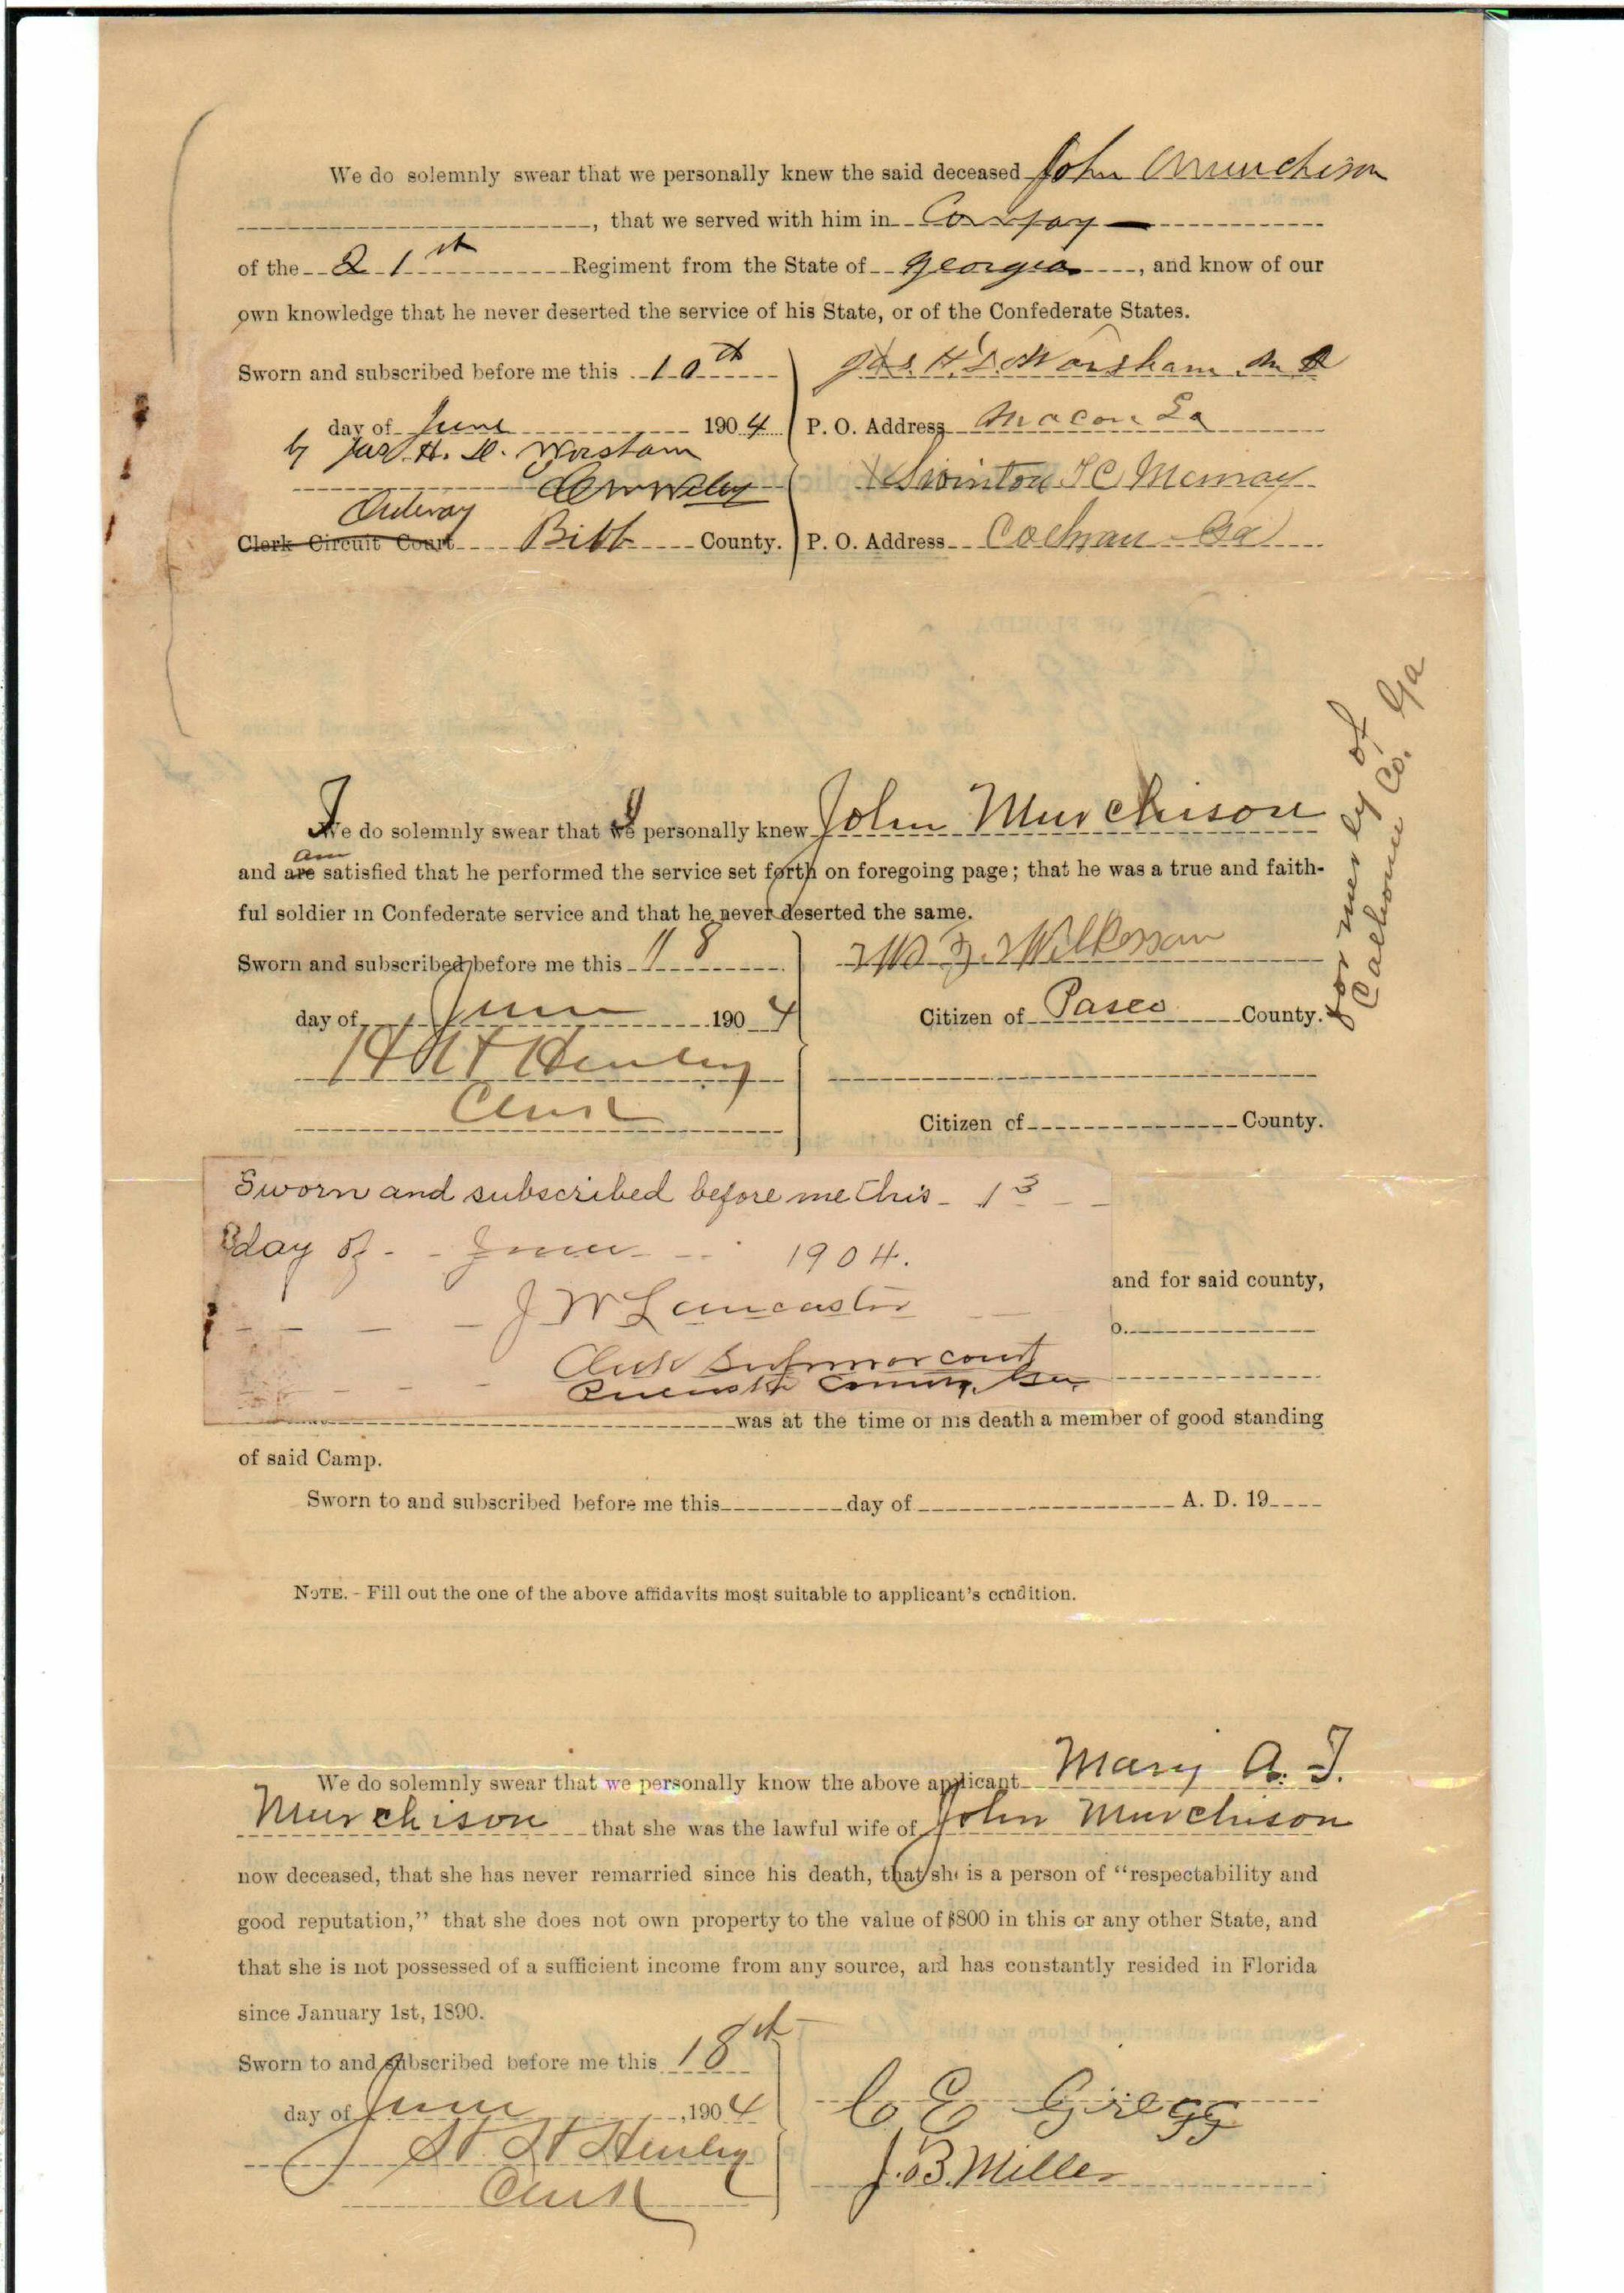 We do solemnly swear that we personally knew the said deceased John Murchison
, that we served with him in Compay
of the 21st Regiment from the State of Georgia, and know of our
own knowledge that he never deserted the service of his State, or of the Confederate States.
Sworn and subscribed before me this 10th
Jas. H. D. Worsham M D
day of June 1904
P. O. Address Macon Ga
by Jas H. D. Worsham
Swinton
Bibb County.
Clerk Circuit Court
P. O. Address Cochran Ga
I We do solemnly swear that I we personally knew John Murchison
and am are satisfied that he performed the service set forth on foregoing page; that he was a true and faith-
ful soldier in Confederate service and that he never deserted the same.
Sworn and subscribed before me this 18
Wilkerson
day of June 1904
Citizen of Pasco County.
formerly of
Calhoun Co. Ga
Henley
Clerk
Citizen of County.
Sworn and subscribed before me this 13
day of June 1904.
J W Lancaster
Clerk Superior court
Pulaski County, Ga.
and for said county,
o.
was at the time of his death a member of good standing
of said Camp.
Sworn to and subscribed before me this day of A. D. 19
NOTE.- Fill out the one of the above affidavits most suitable to applicant's condition.
We do solemnly swear that we personally know the above applicant Mary A. T.
Murchison that she was the lawful wife of John Murchison
now deceased, that she has never remarried since his death, that she is a person of "respectability and
good reputation," that she does not own property to the value of $800 in this or any other State, and
that she is not possessed of a sufficient income from any source, and has constantly resided in Florida
since January 1st, 1890.
Sworn to and subscribed before me this 18th
day of June, 1904
C E Gregg
Henley
J. B. Miller
Clerk